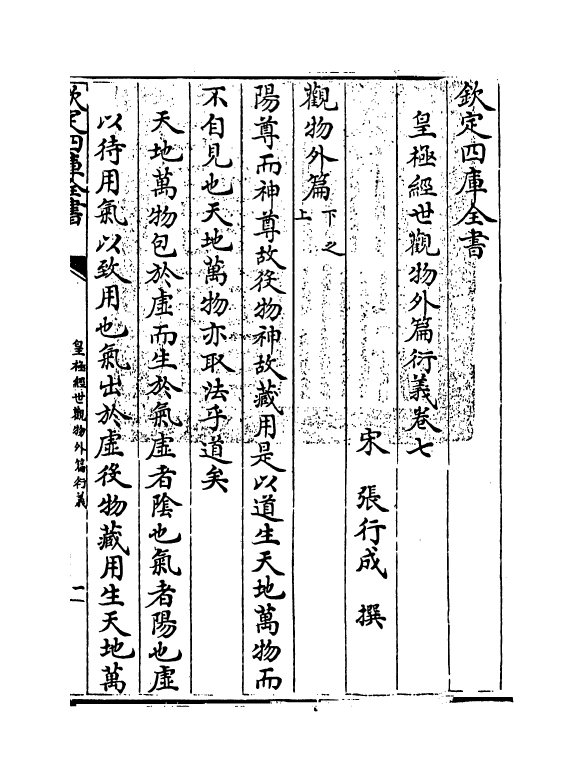 欽定四庫全書
皇極經世觀物外篇衍義卷七
宋 張行成 撰
觀物外篇下之上
陽尊而神尊故役物神故藏用是以道生天地萬物而
不自見也天地萬物亦取法乎道矣
天地萬物包於虛而生於氣虛者陰也氣者陽也虛
以待用氣以致用也氣出於虛役物藏用生天地萬
欽定四庫全書
皇極經世觀物外篇衍義
一